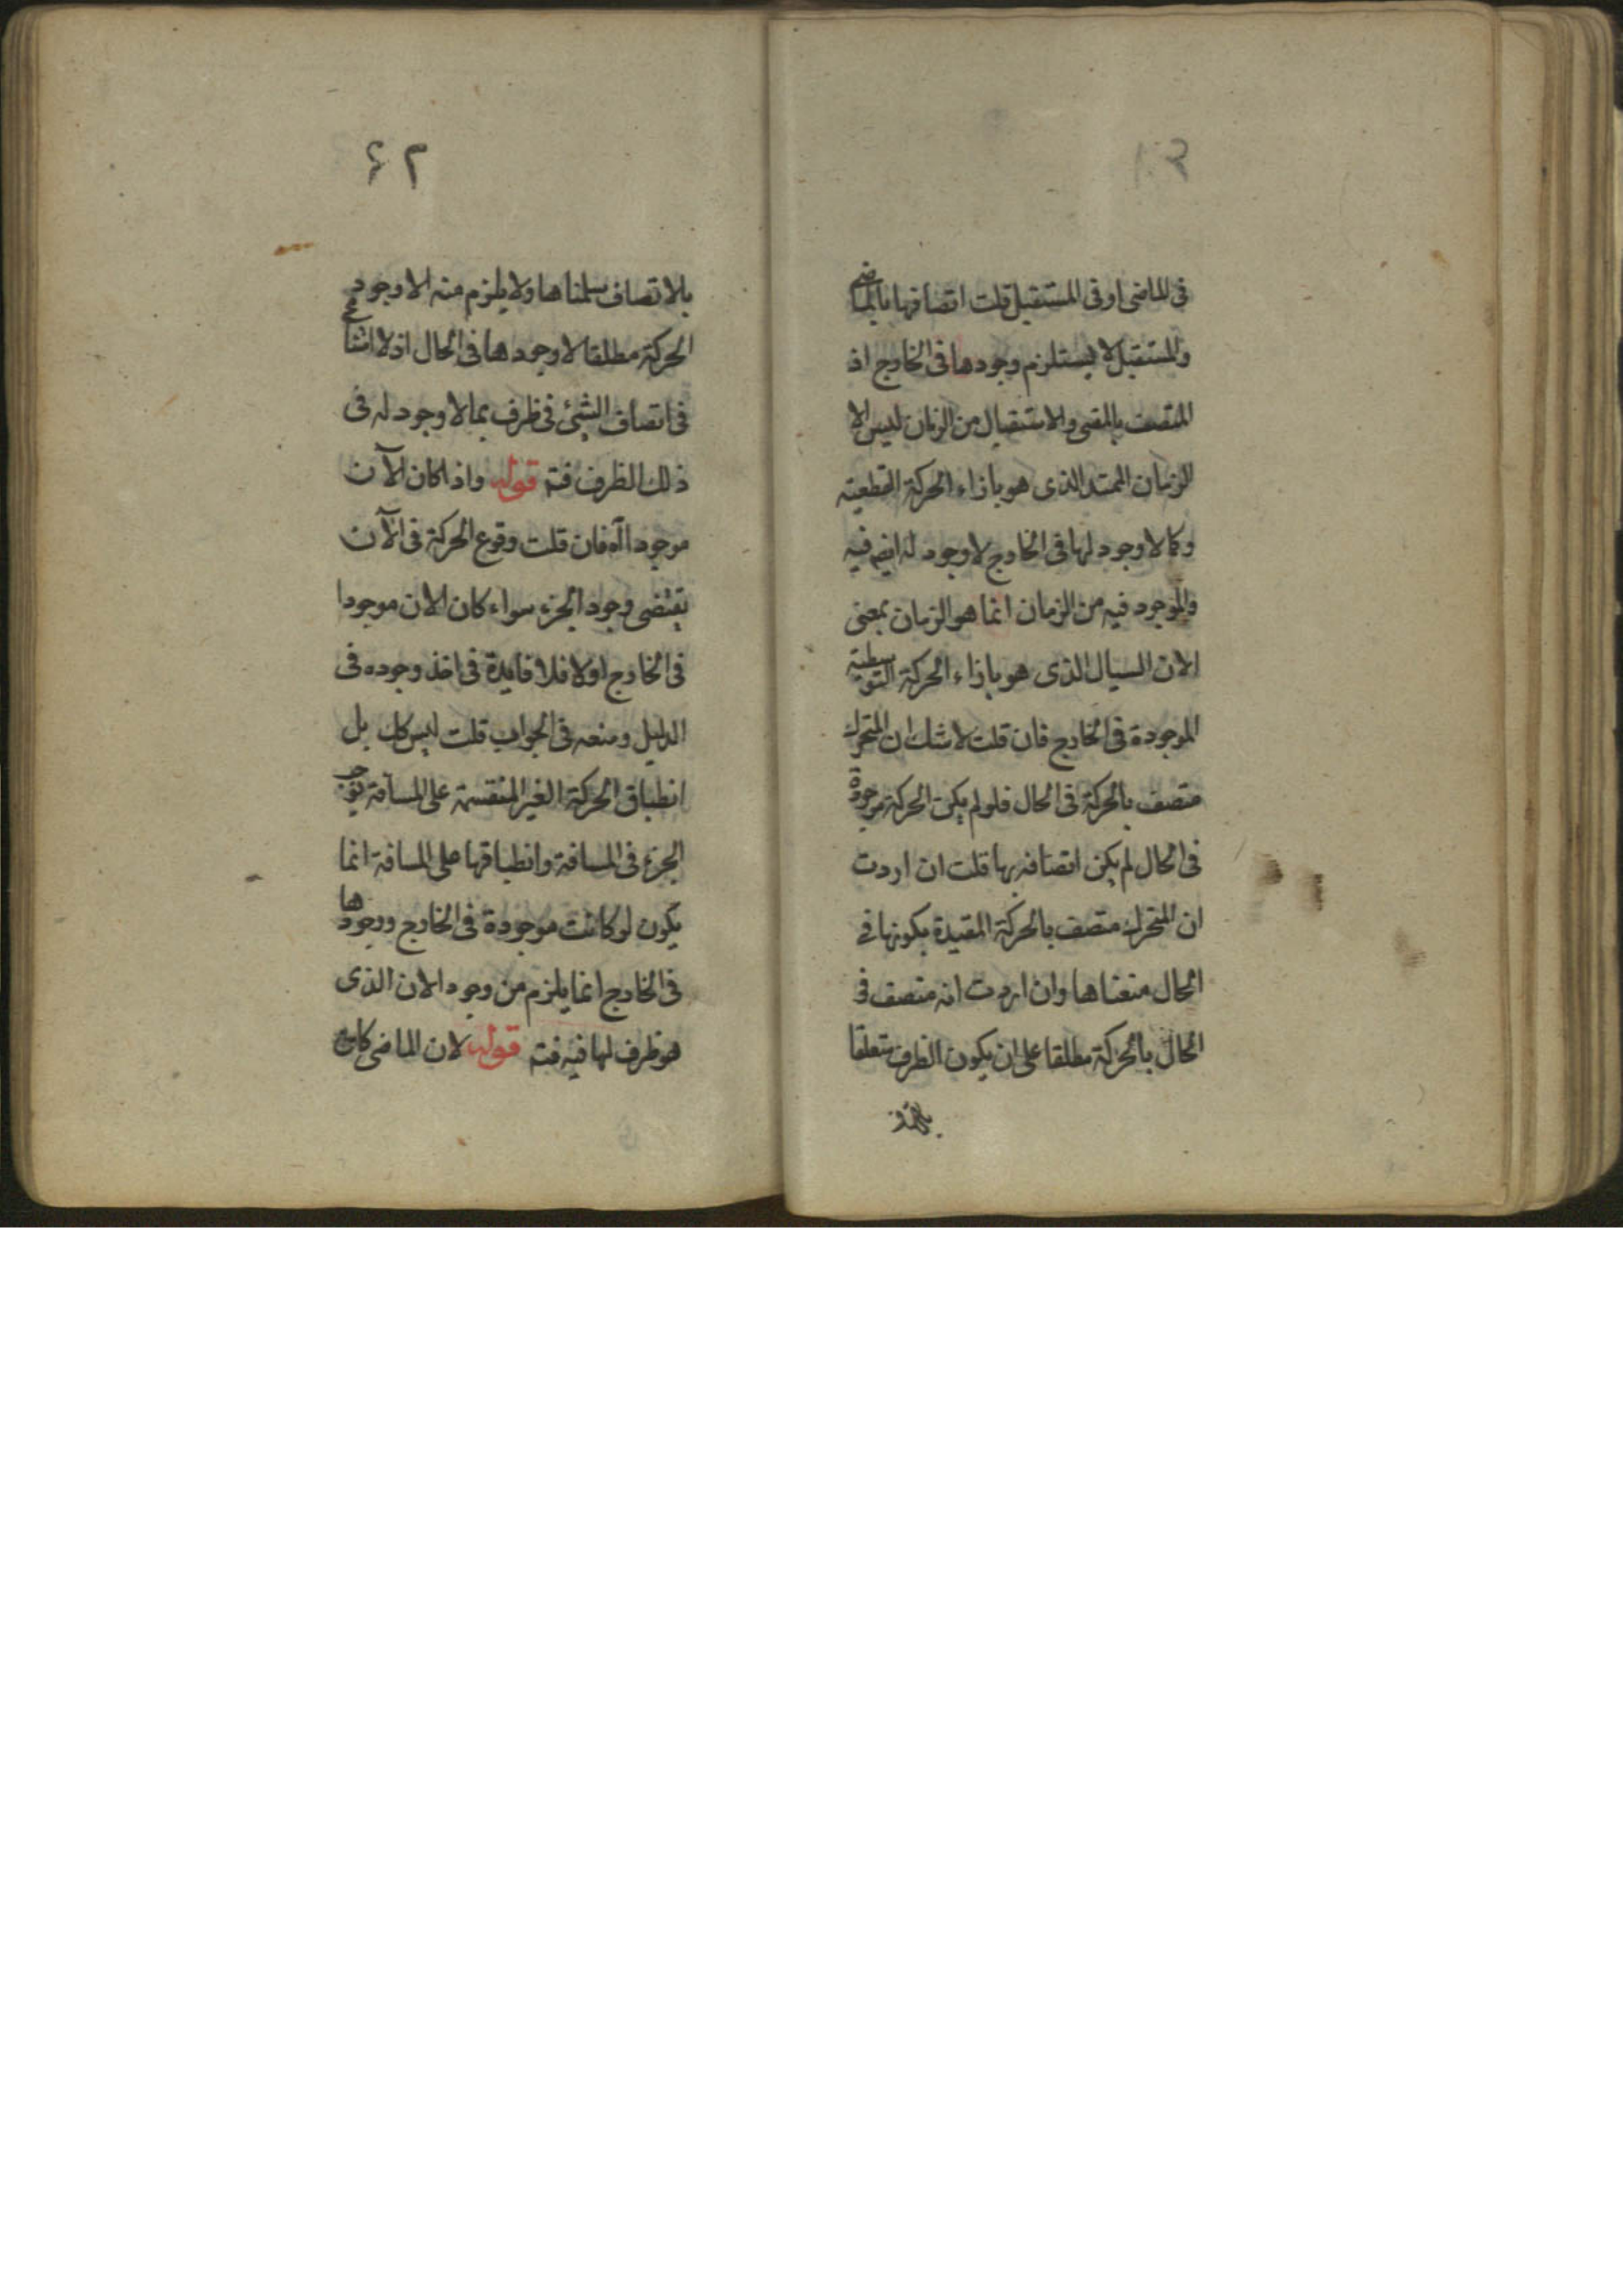 في الماضى او في المستقبل قلت اتصافها بالماضى
والمستقبل لا يستلزم وجودها في الخارج اذ
المتصف بالمضى والاستقبال من الزمان ليس الا
الزمان الممتد الذى هو بازاء الحركة القطعية
وكما لا وجود لها في الخارج لا وجود له ايضا فيه
والموجود فيه من الزمان انما هو الزمان بمعنى
الان السيال الذى هو بازاء الحركة التوسطية
الموجودة في الخارج فان قلت لا شك ان المتحرك
متصف بالحركة في الحال فلو لم يكن الحركة موجودة
في الحال لم يكن اتصافه بها قلت ان اردت
ان المتحرك متصف بالحركة المقيدة بكونها في
الحال منعناها وان اردت انه متصف في
الحال بالحركة مطلقا على ان يكون الظرف متعلقا
٤٢
بالاتصاف سلمناها ولا يلزم منه الا وجود
الحركة مطلقا لا وجودها في الحال اذ لا امتناع
في اتصاف الشئ في ظرف بما لا وجود له في
ذلك الظرف فتم قوله واذا كان الآن
موجودا آه فان قلت وقوع الحركة في الآن
يقتضى وجود الجزء سواء كان الان موجودا
في الخارج اولا فلا فايدة في اخذ وجوده في
الدليل ومنعه في الجواب قلت ليس كك بل
انطباق الحركة الغير المنقسمة على المسافة يوجب
الجزء في المسافة وانطباقها على المسافة انما
يكون لو كانت موجودة في الخارج ووجودها
في الخارج انما يلزم من وجود الان الذى
هو ظرف لها فيه فتم قوله لان الماضى كان